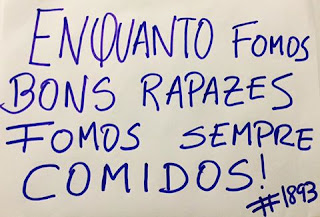 ENQUANTO FOMOS
BONS RAPAZES
FOMOS SEMPRE
COMIDOS!
#1893